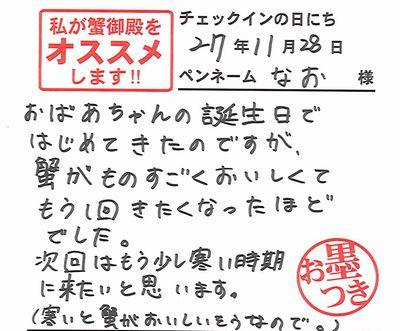 私が蟹御殿を
オススメ
します!!
チェックインの日にち
27年11月28日
ペンネーム なお 様
おばあちゃんの誕生日で
はじめてきたのですが、
蟹がものすごくおいしくて
もう1回きたくなったほど
でした。
次回はもう少し寒い時期
に来たいと思います。
(寒いと蟹がおいしいそうなので。)
お墨つき